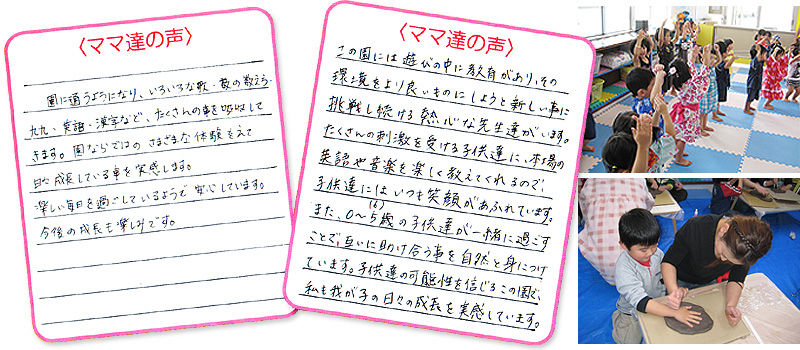 〈ママ達の声〉
園に通うようになり、いろいろな歌・数の数え方・
九九・英語・漢字など、たくさんの事を吸収して
きます。園ならではのさまざまな体験をえて
日々成長している事を実感します。
楽しい毎日を過ごしているようで安心しています。
今後の成長も楽しみです。
〈ママ達の声〉
この園には遊びの中に教育があり、その
環境をより良いものにしようと新しい事に
挑戦し続ける熱心な先生達がいます。
たくさんの刺激を受ける子供達に、本場の
英語や音楽を楽しく教えてくれるので、
子供達にはいつも笑顔があふれています。
また、0〜5(6)歳の子供達が一緒に過ごす
ことで、互いに助け合う事を自然と身につけ
ています。子供達の可能性を信じるこの園で、
私も我が子の日々の成長を実感しています。